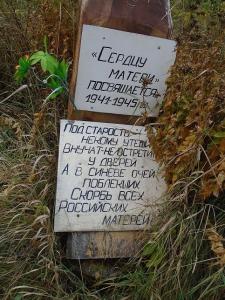 «Сердцу
матери»
посвящается
1941-1945
Под старость
некому утеш
внучат не встрети
у дверей
А в синеве очей
поблекших
Скорбь всех
Российских
матерей